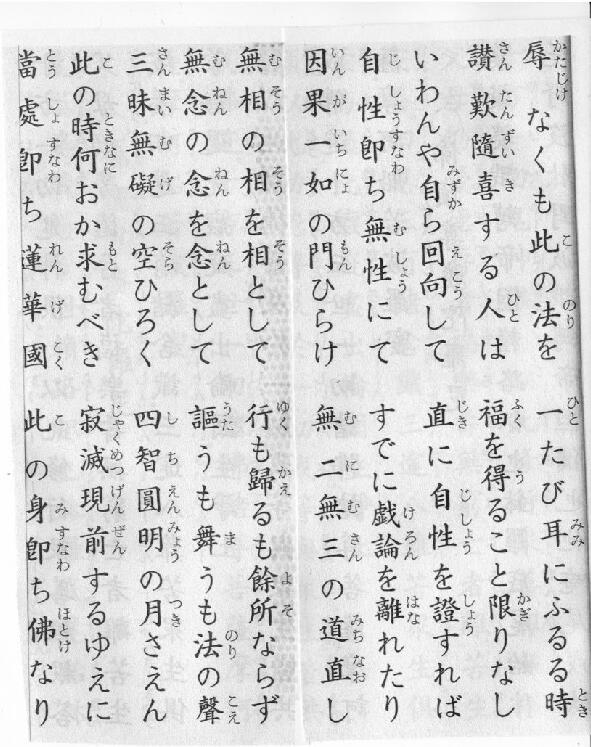 辱なくも此の法を 一たび耳にふるる時
讃歎隨喜する人は 福を得ること限りなし
いわんや自ら回向して 直に自性を證すれば
自性即ち無性にて すでに戯論を離れたり
因果一如の門ひらけ 無二無三の道直し
無相の相を相として 行も歸るも餘所ならず
無念の念を念として 謳うも舞うも法の聲
三昧無礙の空ひろく 四智圓明の月さえん
此の時何おか求むべき 寂滅現前するゆえに
當處即ち蓮華國 此の身即ち佛なり